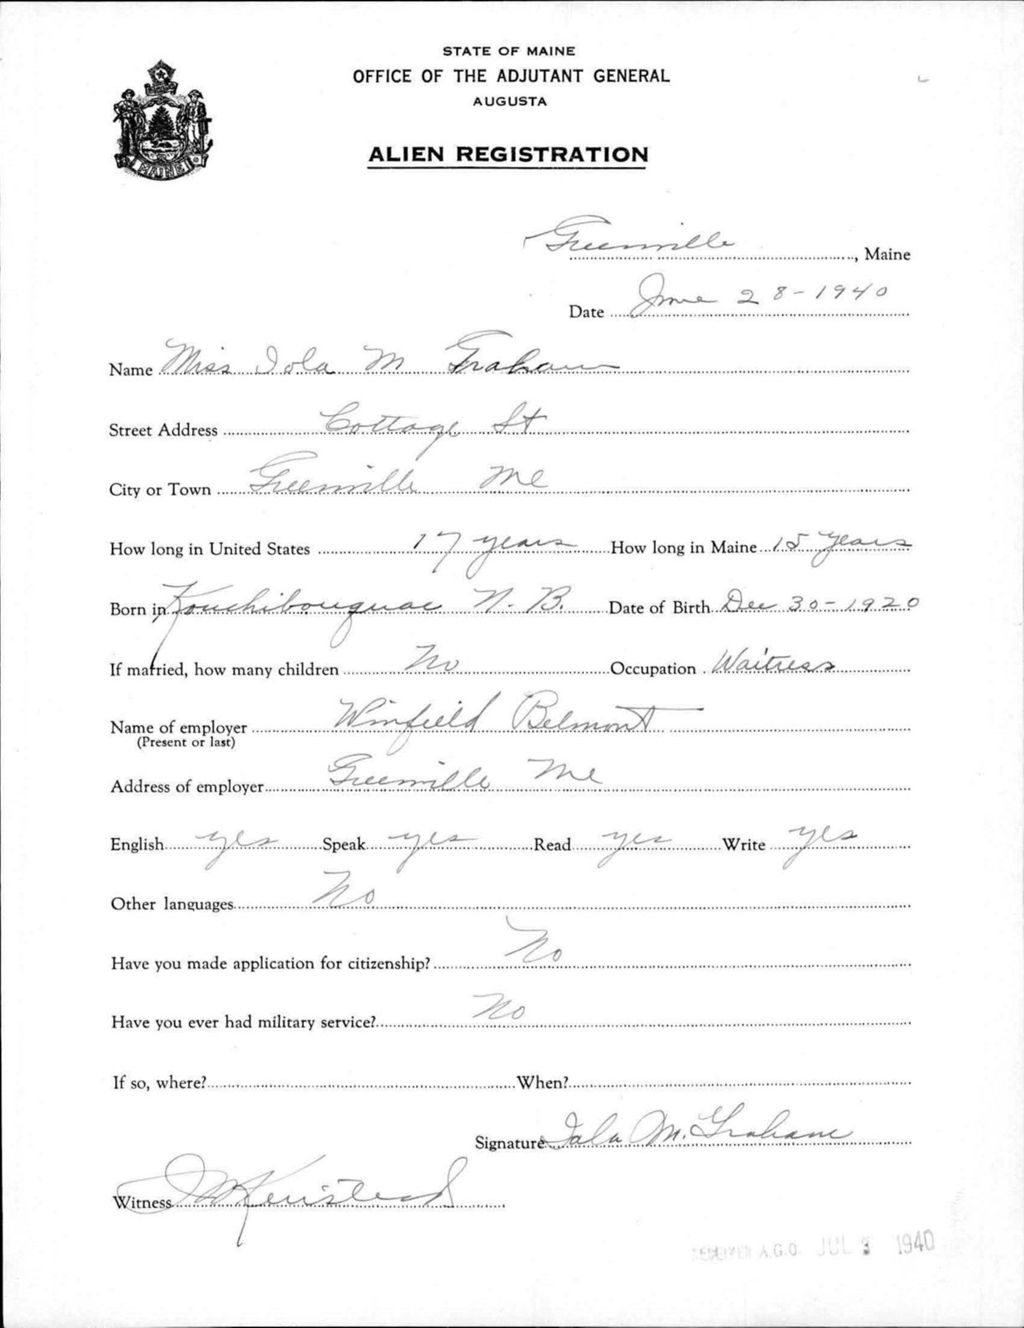 STATE OF MAINE
OFFICE OF THE ADJUTANT GENERAL
AUGUSTA
MAINE
ALIEN REGISTRATION
Greenville, Maine
Date June 28-1940
Name Miss Iola M Graham
Street Address Cottage St
City or Town Greenville Me
How long in United States 17 years How long in Maine 15 Years
Born in Kouchibouguac N.B. Date of Birth Dec 30-1920
If married, how many children No Occupation Waitress
Name of employer Winfield Belmont
(Present or last)
Address of employer Greenville Me
English yes Speak yes Read yes Write yes
Other languages No
Have you made application for citizenship? No
Have you ever had military service? No
If so, where? When?
Signature Iola M. Graham
Witness
A.G.O. JUL 1940